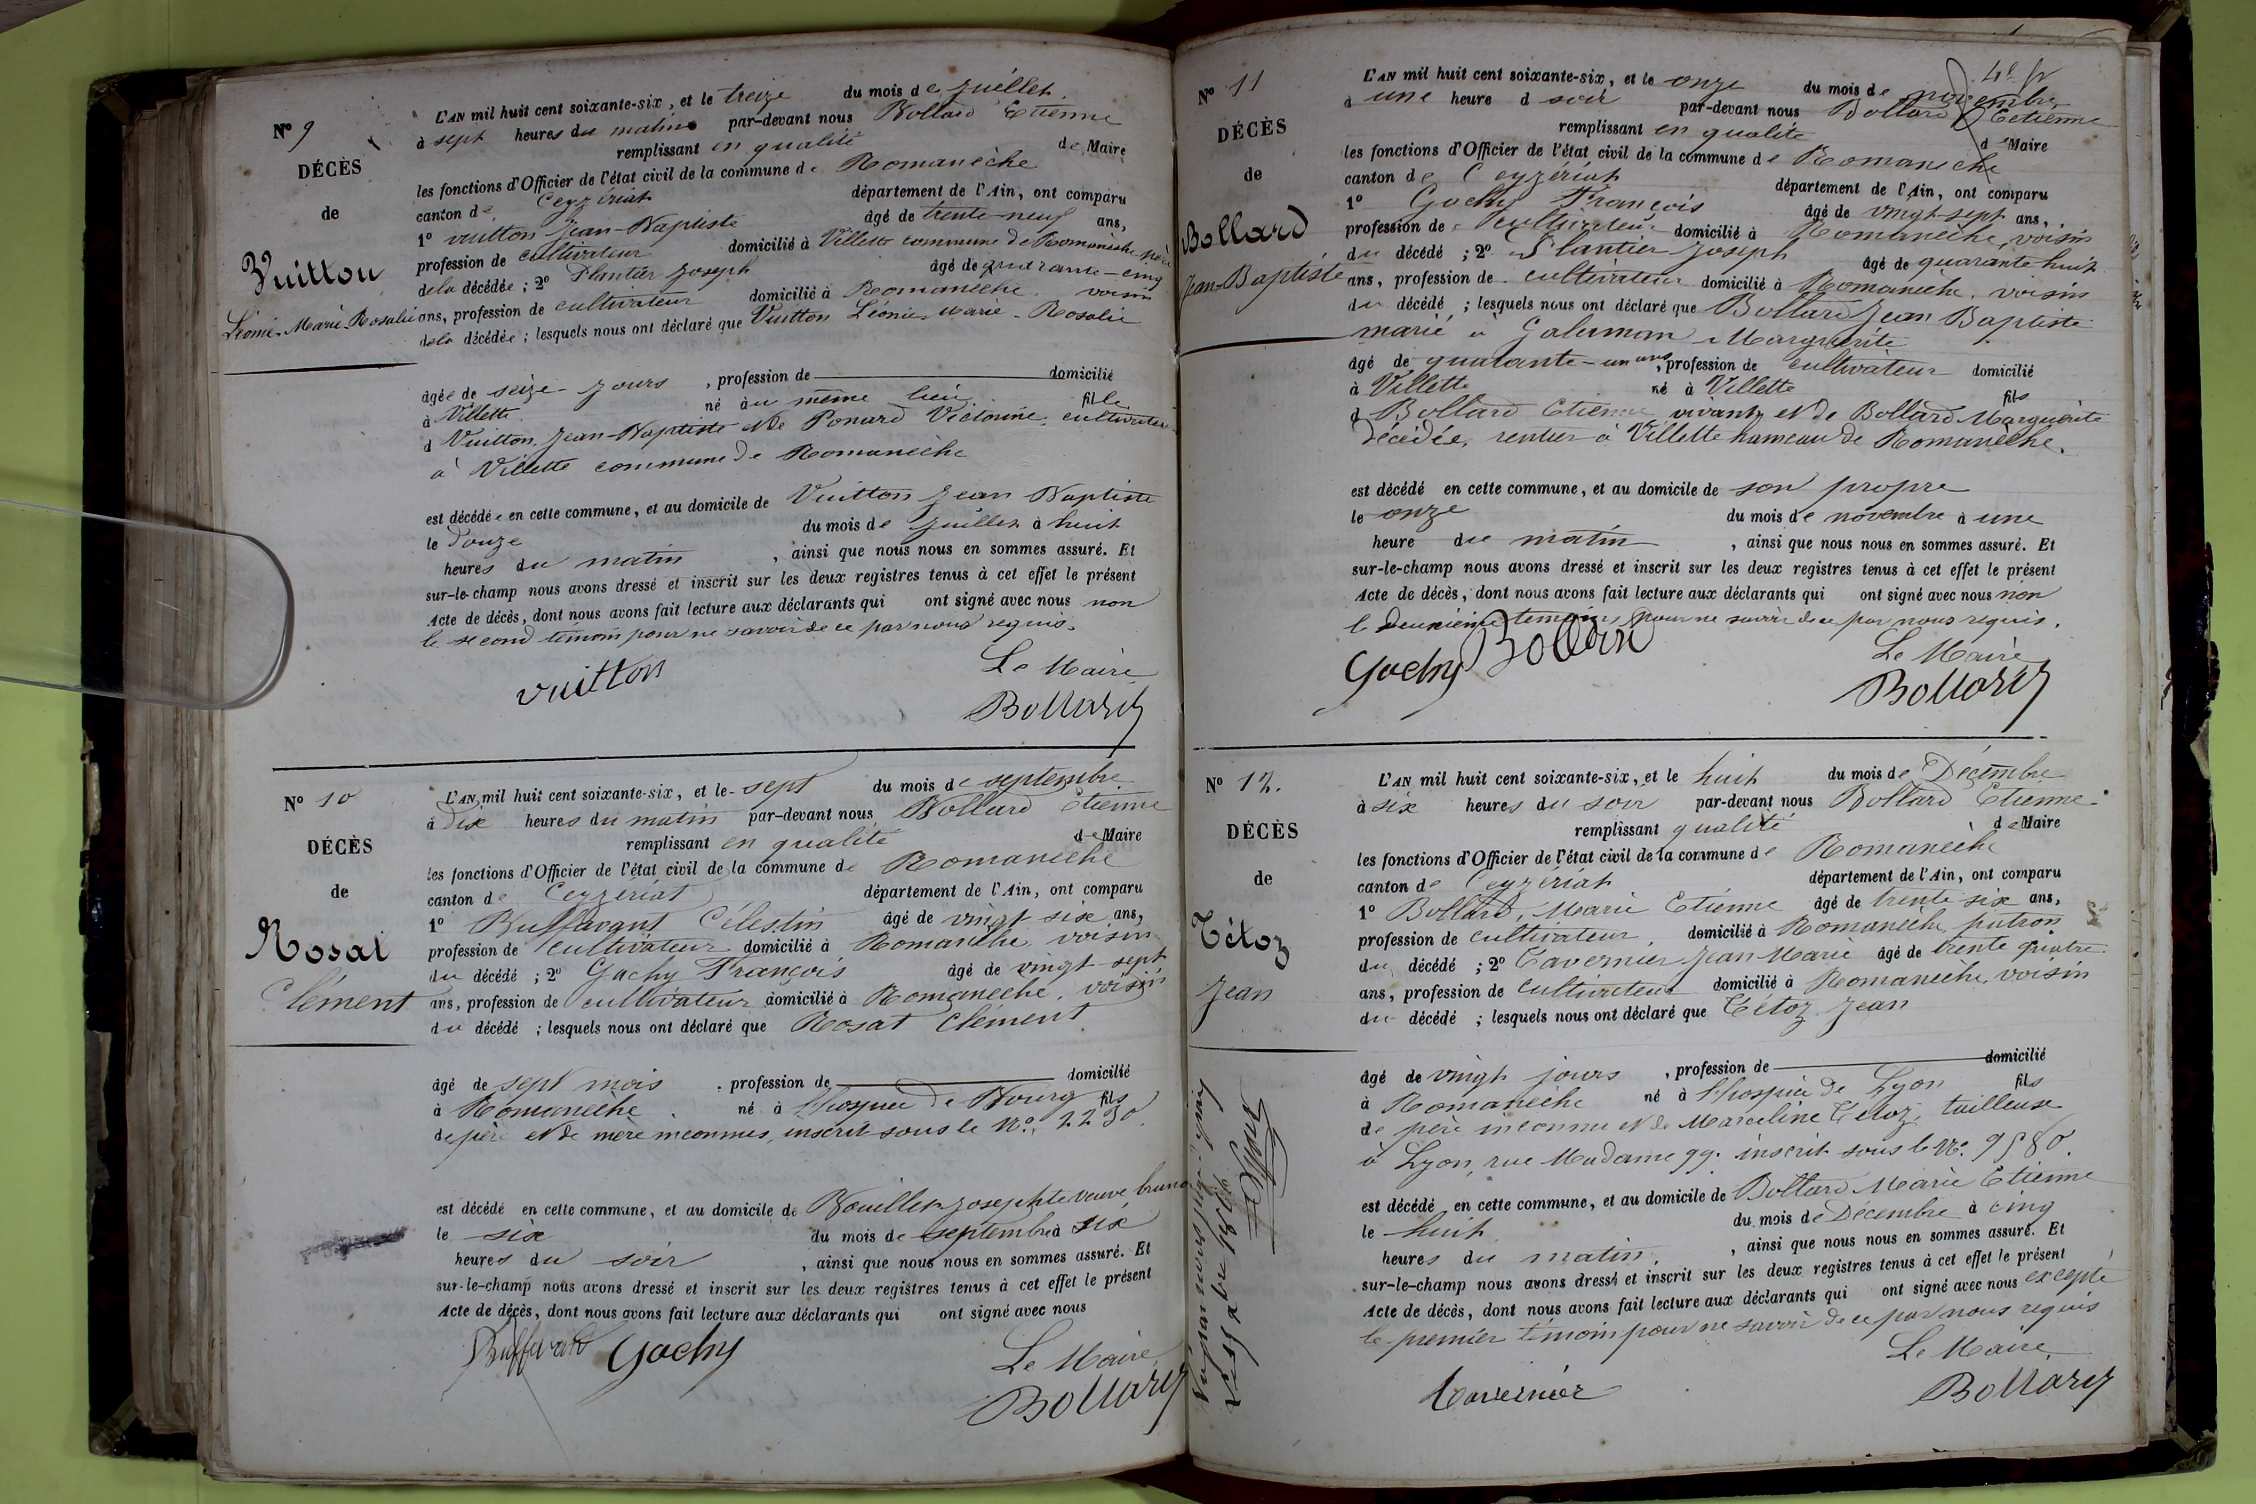 Nº 9
DÉCÈS
de
Vuitton
Léonie-Marie-Rosalie
L'AN mil huit cent soixante-six, et le treize du mois de Juillet
à sept heures du matin par-devant nous Bollard Etienne
remplissant en qualité de Maire
les fonctions d'Officier de l'état civil de la commune de Romanèche
canton de Ceyzériat département de l'Ain, ont comparu
1º Vuitton Jean-Baptiste âgé de trente-neuf ans,
profession de cultivateur domicilié à Villette commune de Romanèche père
de la décédée ; 2º Plantier Joseph âgé de quarante-cinq
ans, profession de cultivateur domicilié à Romanèche voisin
de la décédée ; lesquels nous ont déclaré que Vuitton Léonie-Marie-Rosalie
âgée de seize jours , profession de domicilié
à Villette né au même lieu fille
d Vuitton Jean-Baptiste et de Ponard Victorine, cultivateurs
à Villette commune de Romanèche
est décédée en cette commune, et au domicile de Vuitton Jean Baptiste
le douze du mois de Juillet à huit
heures du matin , ainsi que nous nous en sommes assuré. Et
sur-le-champ nous avons dressé et inscrit sur les deux registres tenus à cet effet le présent
Acte de décès, dont nous avons fait lecture aux déclarants qui ont signé avec nous non
le second témoin pour ne savoir de ce par nous requis.
Vuitton
Le Maire
Bollard
Nº 10
DÉCÈS
de
Rosat
Clément
L'AN mil huit cent soixante-six, et le sept du mois de septembre
à dix heures du matin par-devant nous Bollard Etienne
remplissant en qualité de Maire
les fonctions d'Officier de l'état civil de la commune de Romanèche
canton de Ceyzériat département de l'Ain, ont comparu
1º Buffavant Célestin âgé de vingt six ans,
profession de cultivateur domicilié à Romanèche voisin
du décédé ; 2º Gachy François âgé de vingt-sept
ans, profession de cultivateur domicilié à Romanèche, voisin
du décédé ; lesquels nous ont déclaré que Rosat Clément
âgé de sept mois , profession de domicilié
à Romanèche. né à l'hospice de Bourg fils
de père et de mère inconnus, inscrit sous le Nº. 2230.
est décédé en cette commune, et au domicile de Bouillet Josephte veuve brun
le six du mois de septembre à six
heures du soir , ainsi que nous nous en sommes assuré. Et
sur-le-champ nous avons dressé et inscrit sur les deux registres tenus à cet effet le présent
Acte de décès, dont nous avons fait lecture aux déclarants qui ont signé avec nous
Buffavant Gachy
Le Maire
Bollard
Nº 11
DÉCÈS
de
Bollard
Jean-Baptiste
L'AN mil huit cent soixante-six, et le onze du mois de novembre
à une heure d soir par-devant nous Bollard Etienne
remplissant en qualité de Maire
les fonctions d'Officier de l'état civil de la commune de Romanèche
canton de Ceyzériat département de l'Ain, ont comparu
1º Gachy François âgé de vingt-sept ans,
profession de cultivateur domicilié à Romanèche, voisin
du décédé ; 2º Plantier Joseph âgé de quarante huit
ans, profession de cultivateur domicilié à Romanèche, voisin
du décédé ; lesquels nous ont déclaré que Bollard Jean Baptiste
marié à Galumon Marguerite
âgé de quarante-un ans, profession de cultivateur domicilié
à Villette né à Villette fils
d Bollard Etienne vivant et de Bollard Marguerite
décédée, rentier à Villette hameau de Romanèche.
est décédé en cette commune, et au domicile de son propre
le onze du mois de novembre à une
heure du matin , ainsi que nous nous en sommes assuré. Et
sur-le-champ nous avons dressé et inscrit sur les deux registres tenus à cet effet le présent
Acte de décès, dont nous avons fait lecture aux déclarants qui ont signé avec nous non
le deuxième témoin, pour ne savoir de ce par nous requis.
Gachy Bollard
Le Maire
Bollard
Nº 12.
DÉCÈS
de
Tétoz
Jean
L'AN mil huit cent soixante-six, et le huit du mois de Décembre
à six heures du soir par-devant nous Bollard Etienne
remplissant qualité de Maire
les fonctions d'Officier de l'état civil de la commune de Romanèche
canton de Ceyzériat département de l'Ain, ont comparu
1º Bollard, Marie Etienne âgé de trente six ans,
profession de cultivateur, domicilié à Romanèche, patron
du décédé ; 2º Tavernier Jean Marie âgé de trente quatre
ans, profession de cultivateur domicilié à Romanèche, voisin
du décédé ; lesquels nous ont déclaré que Tétoz Jean
âgé de vingt jours , profession de domicilié
à Romanèche né à l'hospice de Lyon fils
de père inconnu et de Marceline Tétoz, tailleuse
à Lyon, rue Madame 99. inscrit sous le Nº. 9580.
est décédé en cette commune, et au domicile de Bollard Marie Etienne
le huit du mois de Décembre à cinq
heures du matin. , ainsi que nous nous en sommes assuré. Et
sur-le-champ nous avons dressé et inscrit sur les deux registres tenus à cet effet le présent
Acte de décès, dont nous avons fait lecture aux déclarants qui ont signé avec nous excepté
le premier témoin pour ne savoir de ce par nous requis
Tavernier
Le Maire
Bollard